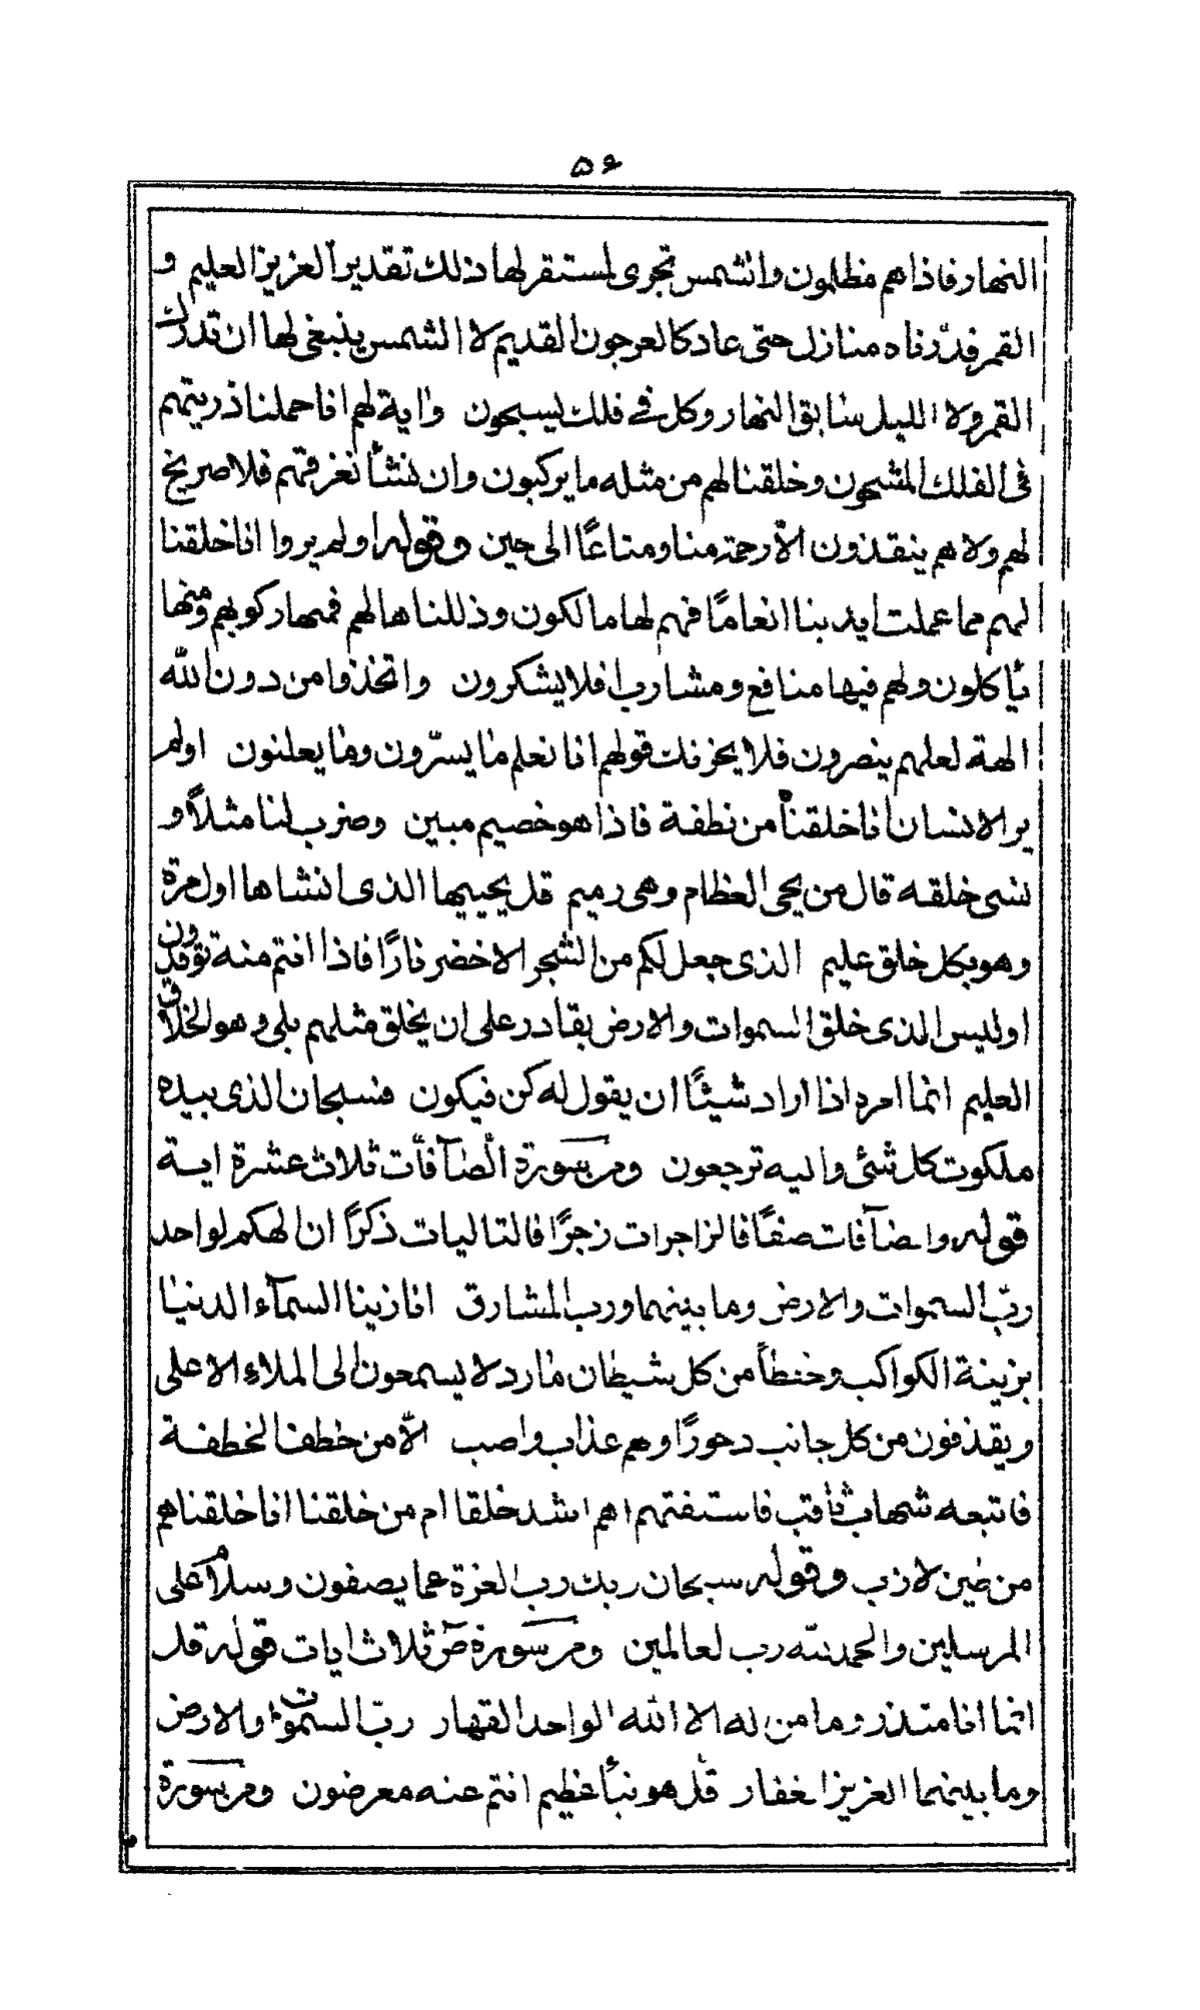 ۵۶
النهار فاذا هم مظلمون والشمس تجرى لمستقر لها ذلك تقدير العزيز العليم و
القمر قدّرناه منازل حتى عاد كالعرجون القديم لا الشمس ينبغى لها ان تدرك
القمر ولا الليل سابق النهار وكل فى فلك يسبحون واية لهم انا حملنا ذريتهم
فى الفلك المشحون وخلقنا لهم من مثله ما يركبون وان نشأ نغرقهم فلا صريخ
لهم ولا هم ينقذون الاّ رحمة منا ومتاعًا الى حين وقوله اولم يروا انا خلقنا
لهم مما عملت ايدينا انعامًا فهم لها مالكون وذللناها لهم فمنها ركوبهم ومنها
يأكلون ولهم فيها منافع ومشارب افلا يشكرون واتخذوا من دون الله
الهة لعلهم ينصرون فلا يحزنك قولهم انا نعلم ما يسرّون وما يعلنون اولم
ير الانسان انا خلقناه من نطفة فاذا هو خصيم مبين وضرب لنا مثلاً و
نسى خلقه قال من يحيى العظام وهى رميم قل يحييها الذى انشاها اول مرة
وهو بكل خلق عليم الذى جعل لكم من الشجر الاخضر نارًا فاذا انتم منه توقدون
اوليس الذى خلق السموات والارض بقادر على ان يخلق مثلهم بلى وهو الخلاق
العليم انما امره اذا اراد شيئًا ان يقول له كن فيكون فسبحان الذى بيده
ملكوت كل شئ واليه ترجعون ومن سورة الصّآفّات ثلاث عشرة اية
قوله والصآفات صفًا فالزاجرات زجرًا فالتاليات ذكرًا ان الهكم لواحد
ربّ السموات والارض وما بينهما ورب المشارق انا زينا السمآء الدنيا
بزينة الكواكب وحفظاً من كل شيطان مارد لا يسمعون الى الملاء الاعلى
ويقذفون من كل جانب دحورًا ولهم عذاب واصب الاّ من خطف الخطفة
فاتبعه شهاب ثاقب فاستفتهم اهم اشد خلقا ام من خلقنا انا خلقناهم
من طين لازب وقوله سبحان ربك رب العزة عما يصفون وسلام على
المرسلين والحمد لله رب العالمين ومن سورة صۤ ثلاث ايات قوله قل
انما انا منذر وما من اله الا الله الواحد القهار ربّ السموات والارض
وما بينهما العزيز الغفار قل هو نبأ عظيم انتم عنه معرضون ومن سورة